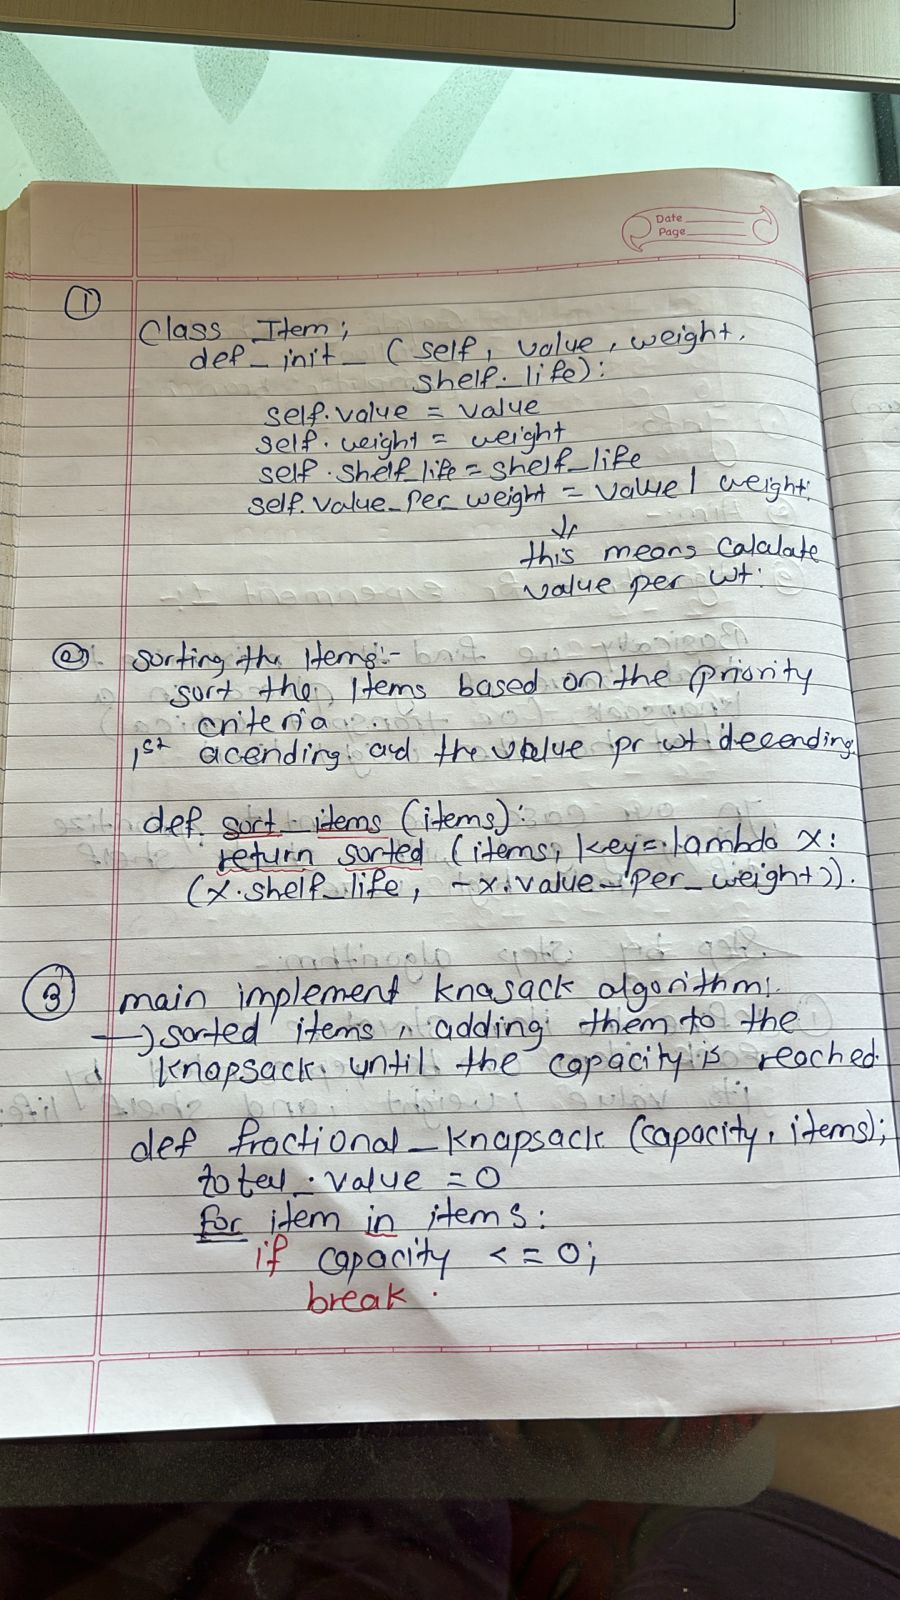 Date
Page
①
Class Item;
def_init_ (self, value, weight,
shelf_life):
self.value = value
self.weight = weight
self.shelf_life = shelf_life
self.value_per_weight = value / weight:
this means Calculate
value per wt:
② sorting the Items:-
sort the Items based on the priority
criteria
1st acending and the value pr wt decending
def sort_items (items):
return sorted (items, key = lambda x:
(x.shelf_life, -x.value_per_weight)).
③ main implement knasack algorithm:
→ sorted items, adding them to the
knapsack until the capacity is reached.
def fractional_knapsack (capacity, items);
total_value = 0
for item in items:
if capacity <= 0;
break.